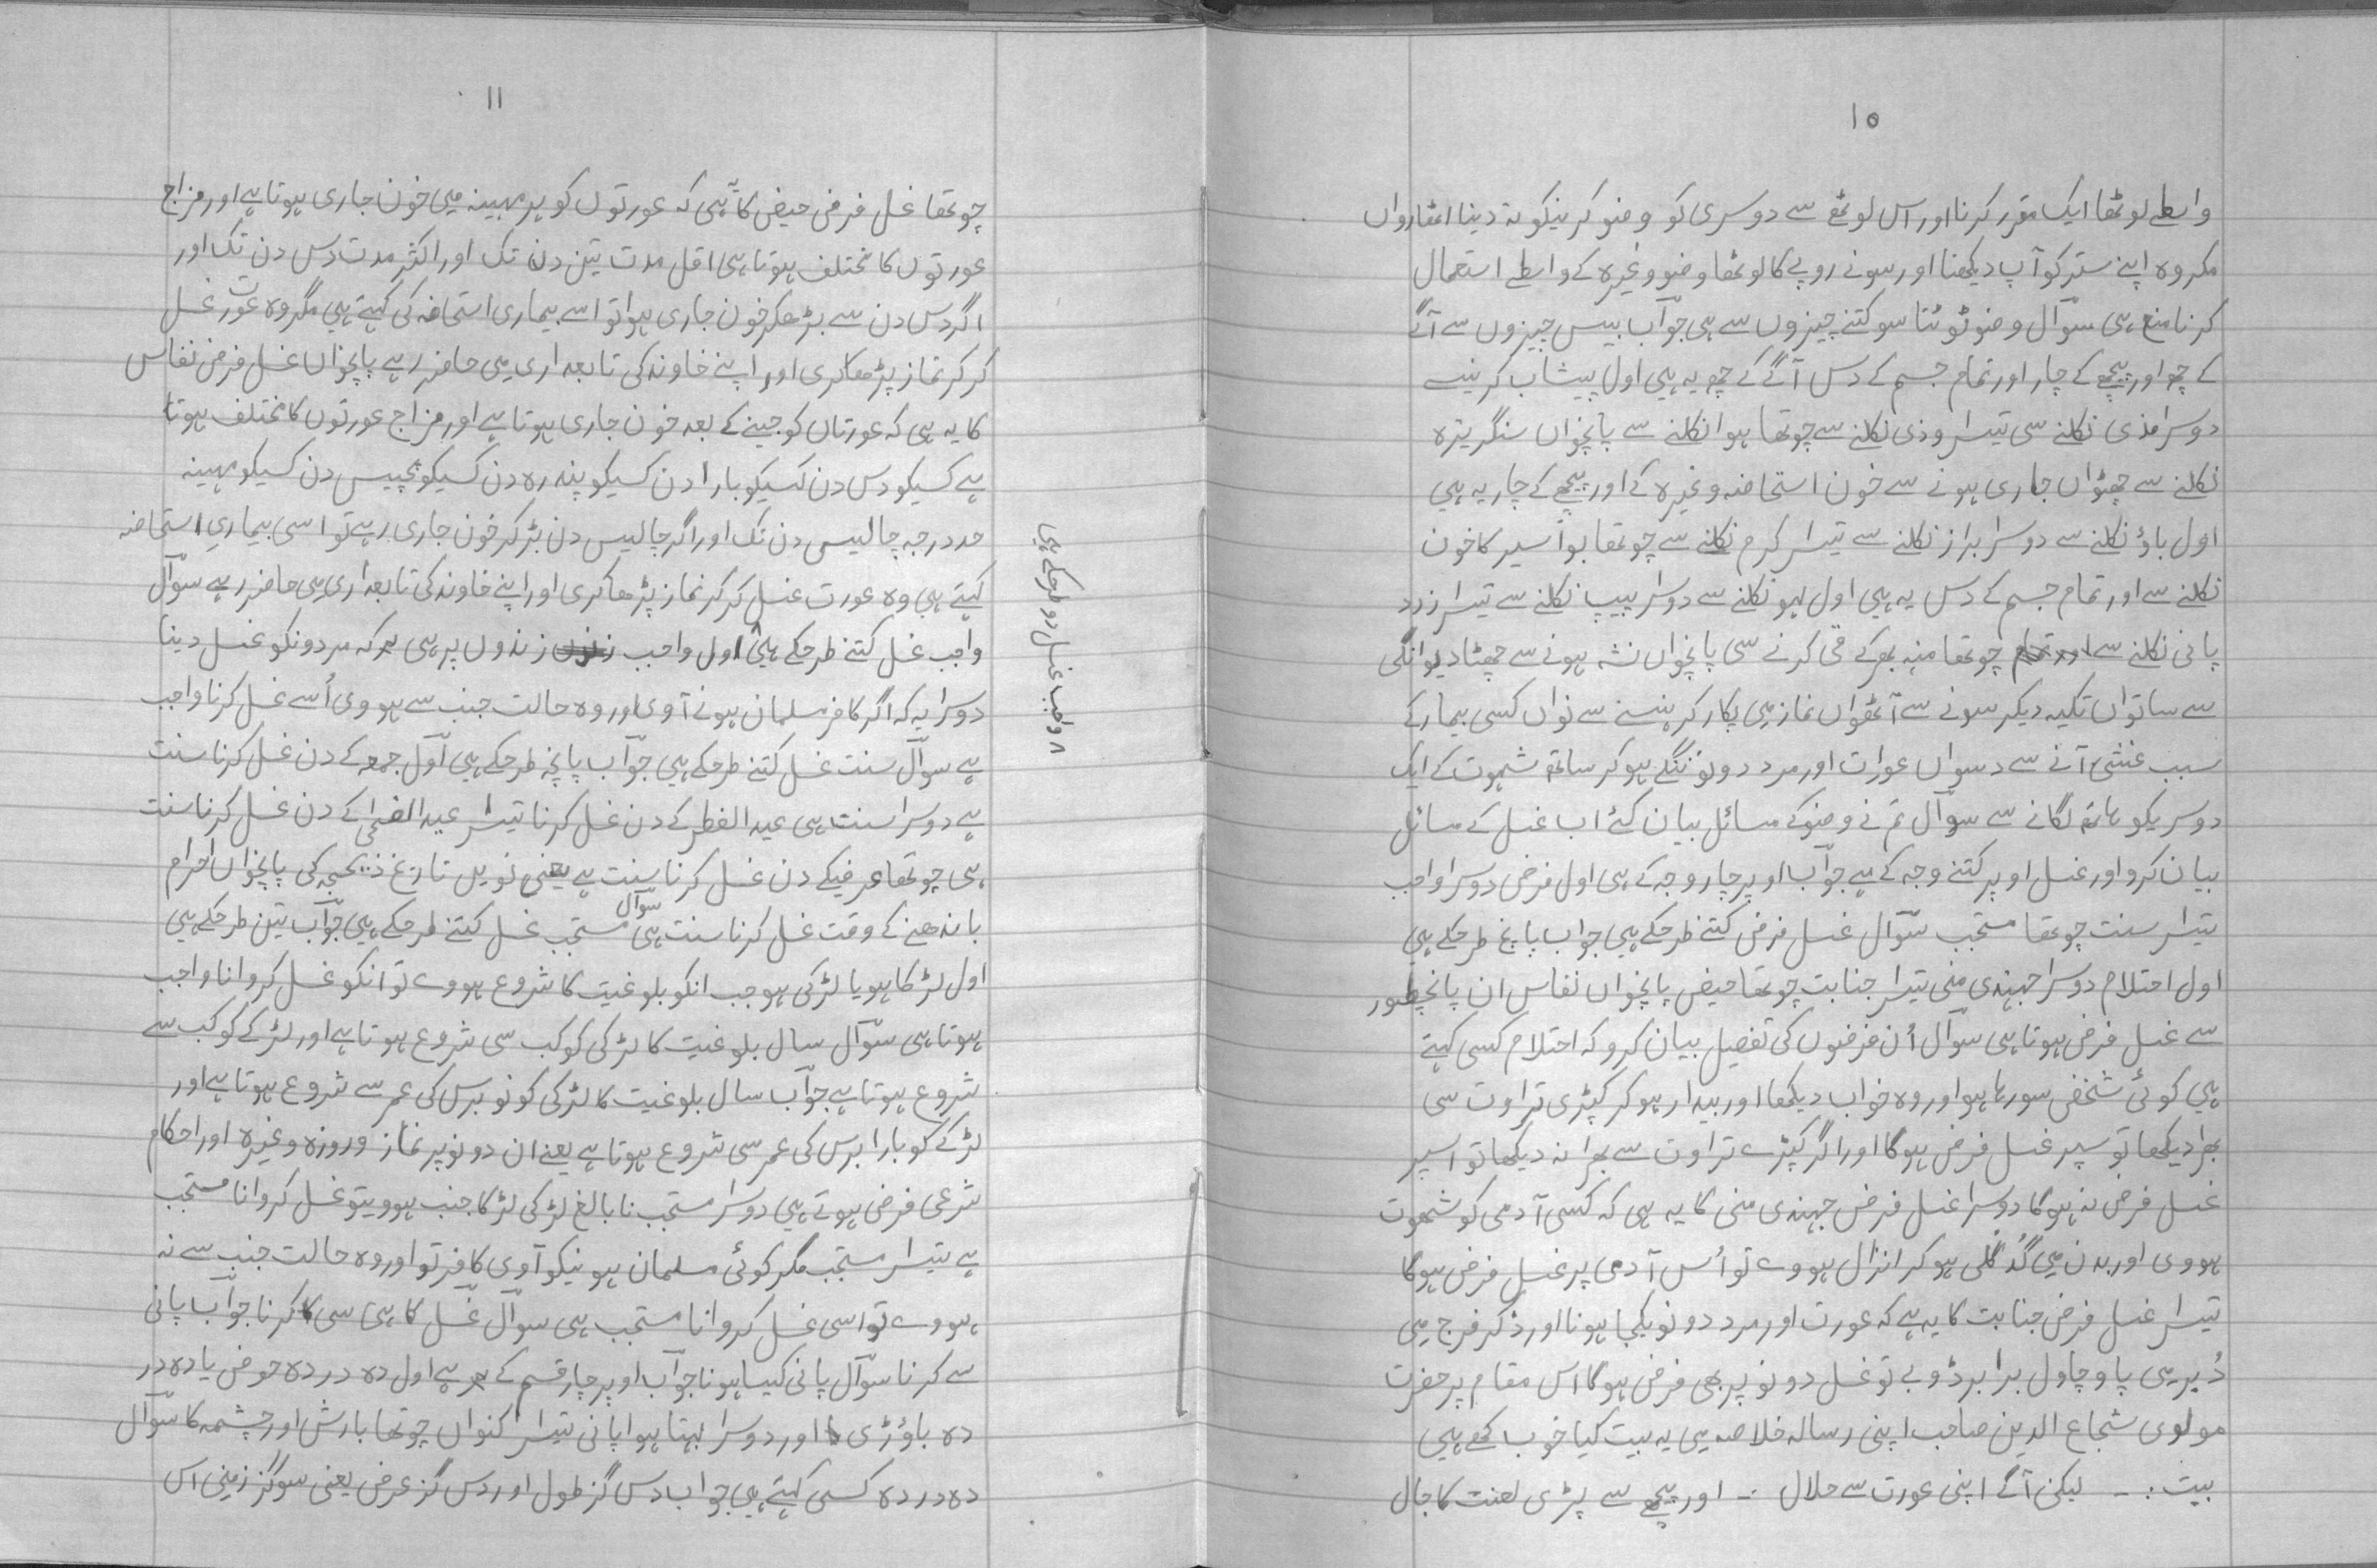 ۱۰
واسطے لوٹھا ایک مقرر کرنا اور اس لوٹھے سے دوسری کو وضو کرنیکو نہ دینا اٹھارواں
مکروہ اپنے ستر کو آپ دیکھنا اور سونے روپے کا لوٹھا وضو وغیرہ کے واسطے استعمال
کرنا منع ہی سوآل وضو ٹوٹنا سو کتنے چیزوں سے ہی جوآب بیس چیزوں سے آگے
کے چھ اور پیچھے کے چار اور تمام جسم کے دس آگے کے چھ یہ ہیں اول پیشاب کرنیسے
دوسرا مذی نکلنے سی تیسرا وذی نکلنے سے چوتھا ہوا نکلنے سے پانچواں سنگریزہ
نکلنے سے چھٹواں جاری ہونے سے خون استحاضہ وغیرہ کے اور پیچھے کے چار یہ ہیں
اول باؤ نکلنے سے دوسرا براز نکلنے سے تیسرا کرم نکلنے سے چوتھا بوآسیر کا خون
نکلنے سے اور تمام جسم کے دس یہ ہیں اول لہو نکلنے سے دوسرا پیپ نکلنے سے تیسرا زرد
پانی نکلنے سے چوتھا منہ بھر کے قی کرنے سی پانچواں نشہ ہونے سے چھٹا دیوانگی
سے ساتواں تکیہ دیکر سونے سے آٹھواں نماز میں پکار کر ہنسنے سے نواں کسی بیمار کے
سبب غنشی آنے سے دسواں عورات اور مرد دونو ننگے ہو کر ساتھ شہوت کے ایک
دوسریکو ہاتہ لگانے سے سوآل تم نے وضو کے مسائل بیان کئے اب غسل کے مسائل
بیان کرو اور غسل اوپر کتنے وجہ کے ہے جوآب اوپر چار وجہ کے ہی اول فرض دوسرا واجب
تیسرا سنت چوتھا مستحب سوآل غسل فرض کتنے طرحکے ہیں جواب پانچ طرحکے ہیں
اول احتلام دوسرا جہندی منی تیسرا جنابت چوتھا حیض پانچواں نفاس ان پانچ طور
سے غسل فرض ہوتا ہی سوآل اُن فرضوں کی تفصیل بیان کرو کہ احتلام کسی کہتے
ہیں کوئی شخص سورہا ہو اور وہ خواب دیکھا اور بیدار ہو کر کپڑی تراوت سی
بھرا دیکھا تو سپر غسل فرض ہوگا اور اگر کپڑے تراوت سے بھرا نہ دیکھا تو اسپر
غسل فرض نہ ہوگا دوسرا غسل فرض جہندی منی کا یہ ہی کہ کسی آدمی کو شہوت
ہووی اور بدن میں گُدگلی ہو کر انزال ہووے تو اُس آدمی پر غسل فرض ہوگا
تیسرا غسل فرض جنابت کا یہ ہے کہ عورت اور مرد دونو یکجا ہونا اور ذکر فرج میں
دُبر میں پاو چاول برابر ڈوبے تو غسل دونو پر بھی فرض ہوگا اس مقام پر حضرت
مولوی شجاع الدین صاحب اپنی رسالہ خلاصہ میں یہ بیت کیا خوب کھے ہیں
بیت :- لیکن آگے اپنی عورت سے حلال :- اور پیچھے سے پڑی لعنت کا جال
۱۱
چوتھا غسل فرض حیض کا ہی کہ عورتوں کو ہر مہینہ میں خون جاری ہوتا ہے اور مزاج
عورتوں کا مختلف ہوتا ہی اقل مدت تین دن تک اور اکثر مدت دس دن تک اور
اگر دس دن سے بڑھکر خون جاری ہوا تو اسے بیماری استحاضہ کی کہتے ہیں مگر وہ عورت غسل
کر کر نماز پڑھا کری اور اپنے خاوند کی تابعداری میں حاضر رہے پانچواں غسل فرض نفاس
کا یہ ہی کہ عورتاں کو جینے کے بعد خون جاری ہوتا ہے اور مزاج عورتوں کا مختلف ہوتا
ہے کسیکو دس دن کسیکو بارا دن کسیکو پندرہ دن کسیکو پچیس دن کسیکو مہینہ
حد درجہ چالیس دن تک اور اگر چالیس دن بڑ کر خون جاری رہے تو اسی بیماریِ استحاضہ
کہتے ہیں وہ عورت غسل کر کر نماز پڑھا کری اور اپنے خاوند کی تابعداری میں حاضر رہے سوآل
واجب غسل کتنے طرحکے ہیں ۸ اول واجب زندوں پر ہی کہ مردونکو غسل دینا
دوسرا یہ کہ اگر کافر مسلمان ہونے آوی اور وہ حالت جنب سے ہووی اُسے غسل کرنا واجب
ہے سوآل سنت غسل کتنے طرحکے ہیں جوآب پانچہ طرحکے ہیں آوّل جمعہ کے دن غسل کرنا سنت
ہے دوسرا سنت ہی عید الفطر کے دن غسل کرنا تیسرا عید الضحٰی کے دن غسل کرنا سنت
ہی چوتھا عرفیکے دن غسل کرنا سنت ہے یعنی نویں تاریخ ذیحجہ کی پانچواں احرام
باندھنے کے وقت غسل کرنا سنت ہی سوآل مستحب غسل کتنے طرحکے ہیں جوآب تین طرحکے ہیں
اول لڑکا ہو یا لڑکی ہو جب انکو بلوغیت کا شروع ہووے تو انکو غسل کروانا واجب
ہوتا ہی سوآل سال بلوغیت کا لڑکی کو کب سی شروع ہوتا ہے اور لڑکے کو کب سے
شروع ہوتا ہے جوآب سال بلوغیت کا لڑکی کو نو برس کی عمر سے شروع ہوتا ہے اور
لڑکے کو بارا برس کی عمر سی شروع ہوتا ہے یعنے ان دونو پر نماز و روزہ وغیرہ اور احکام
شرعی فرض ہوتے ہیں دوسرا مستحب نابالغ لڑکی لڑکا جنب ہوویتو غسل کروانا مستحب
ہے تیسرا مستحب مگر کوئی مسلمان ہونیکو آوی کافر تو اور وہ حالت جنب سے نہ
ہووے تو اسی غسل کروانا مستحب ہی سوآل غسل کاہی سی کرنا جوآب پانی
سے کرنا سوآل پانی کیسا ہونا جوآب اوپر چار قسم کے ہے اول دہ در دہ حوض یا دہ در
دہ باؤڑی اور دوسرا بہتا ہوا پانی تیسرا کنواں چوتھا بارش اور چشمہ کا سوآل
دہ در دہ کسی کہتے ہیں جواب دس گز طول اور دس گز عرض یعنی سو گز زمینی اس
۸ واجب غسل دو طرحکے ہیں